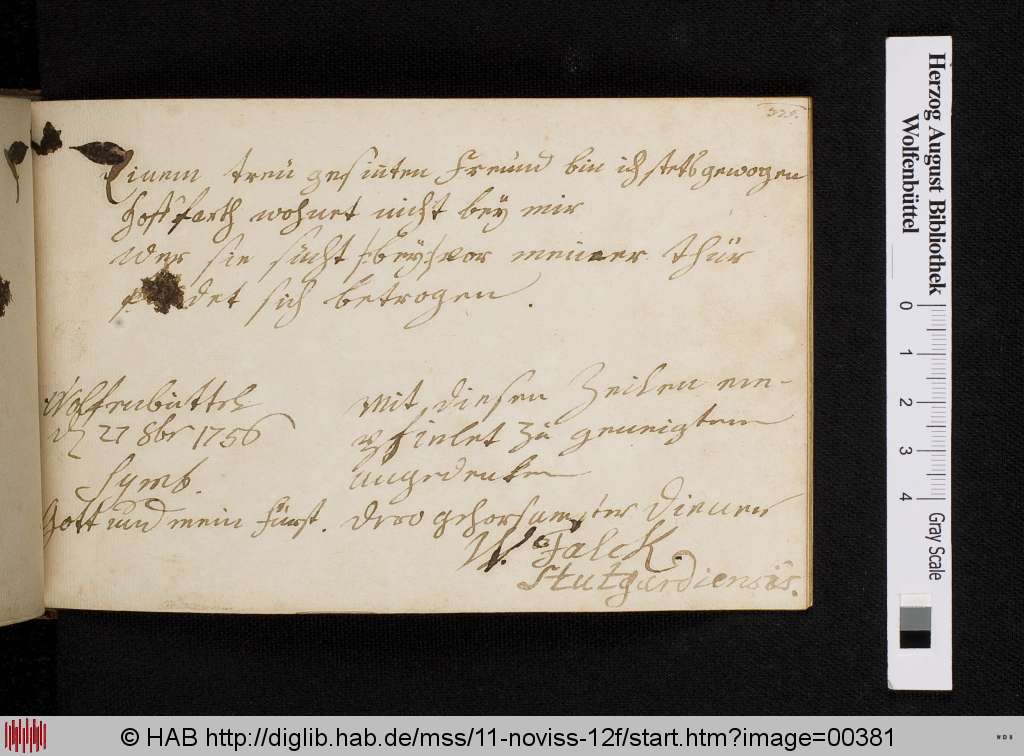 325.
Einem treu gesinten Freund bin ich stets gewogen
Hoffarth wohnet nicht bey mir
Wer sie sucht /:bey:/ vor meiner thür
findet sich betrogen.
Wolffenbüttel
d 27 8br 1756
Symb.
Gott und mein Fürst.
Mit diesen Zeilen em-
pfielet zu geneigtem
angedenken
Dero gehorsamster Diener
W. Falck.
Stutgardiensis.
Herzog August Bibliothek
Wolfenbüttel
0
1
2
3
4
Gray Scale
© HAB http://diglib.hab.de/mss/11-noviss-12f/start.htm?image=00381